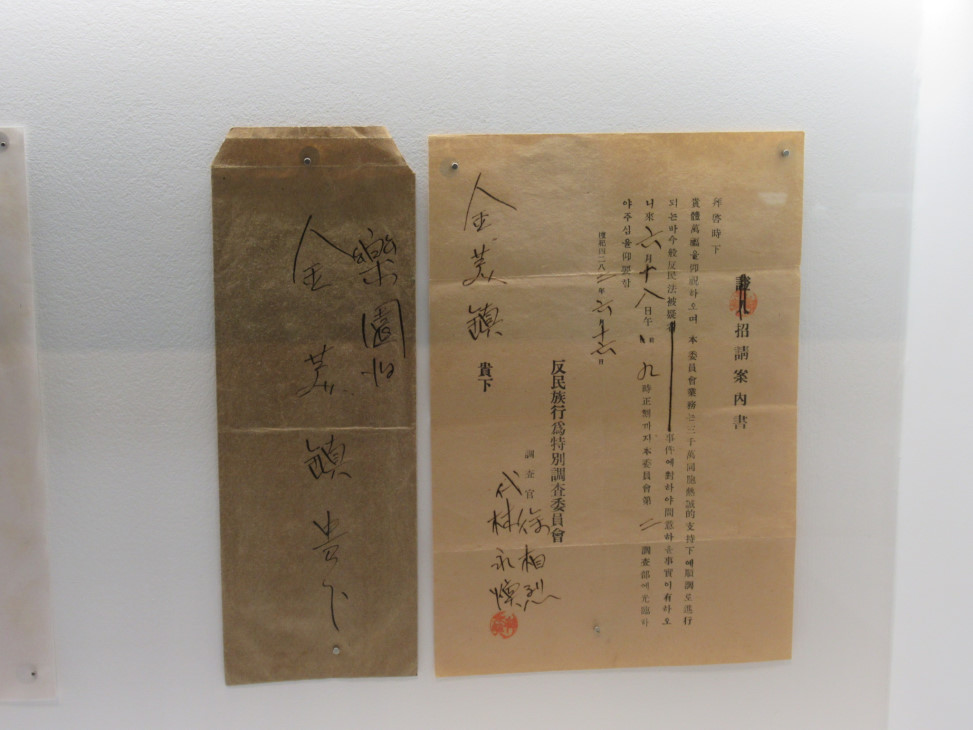 招請案內書
拜啓時下
貴體萬福을仰祝하오며 本委員會業務는三千萬同胞熱誠的支持下에順調로進行
되는바今般反民法被疑者 事件에對하야問議하올事實이有하오
니來六月十八日午前九時正刻까지本委員會第二調査部에光臨하
야주심을仰望함
檀紀四二八二年六月十六日
反民族行爲特別調査委員會
調査官 徐相烈
代 林永燦
金英鎭 貴下
樂園洞
金英鎭貴下